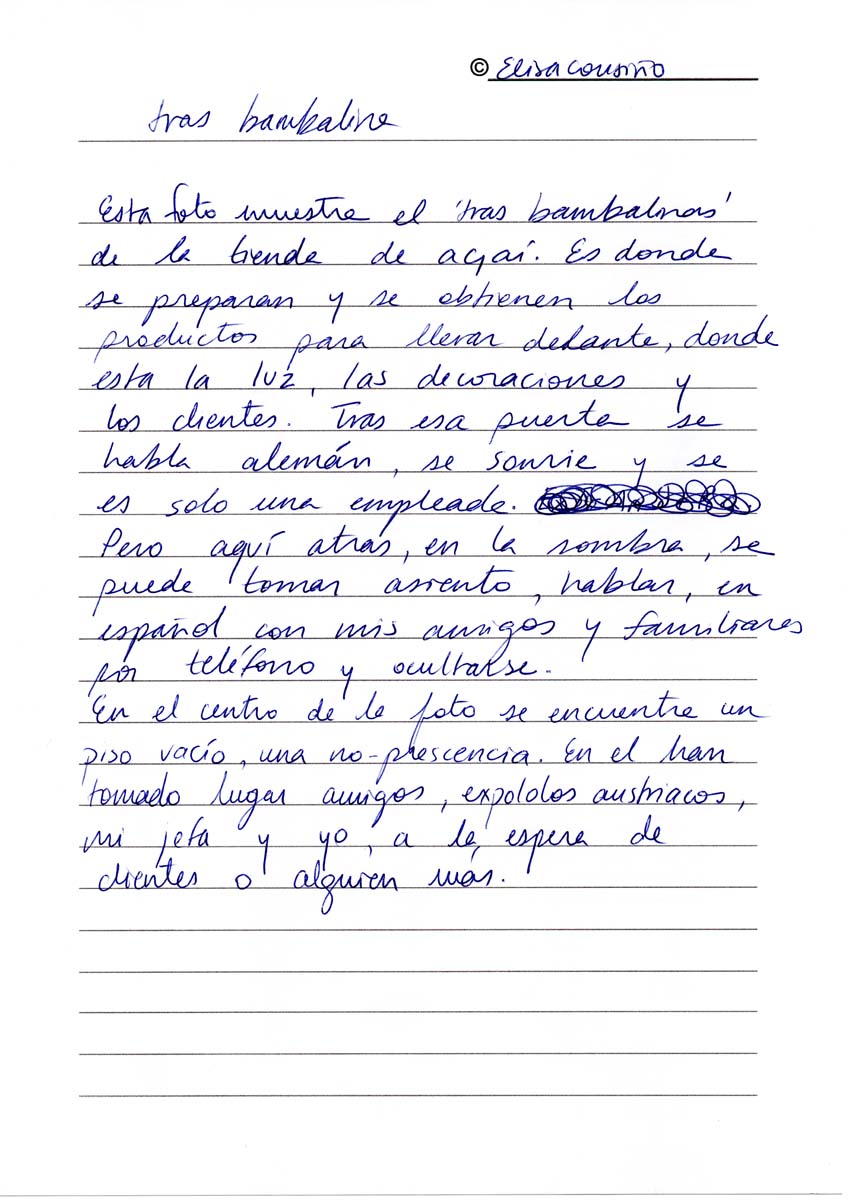 © Elisa Cousiño
tras bambaline
Esta foto muestra el 'tras bambalinas'
de la tienda de açaí. Es donde
se preparan y se obtienen los
productos para llevar delante, donde
esta la luz, las decoraciones y
los clientes. Tras esa puerta se
habla alemán, se sonrie y se
es solo una empleada.
Pero aquí atrás, en la sombra, se
puede tomar asiento, hablar, en
español con mis amigos y familiares
por teléfono y ocultarse.
En el centro de la foto se encuentra un
piso vacío, una no-prescencia. En el han
tomado lugar amigos, expololos austriacos,
mi jefa y yo, a la espera de
clientes o alguien más.